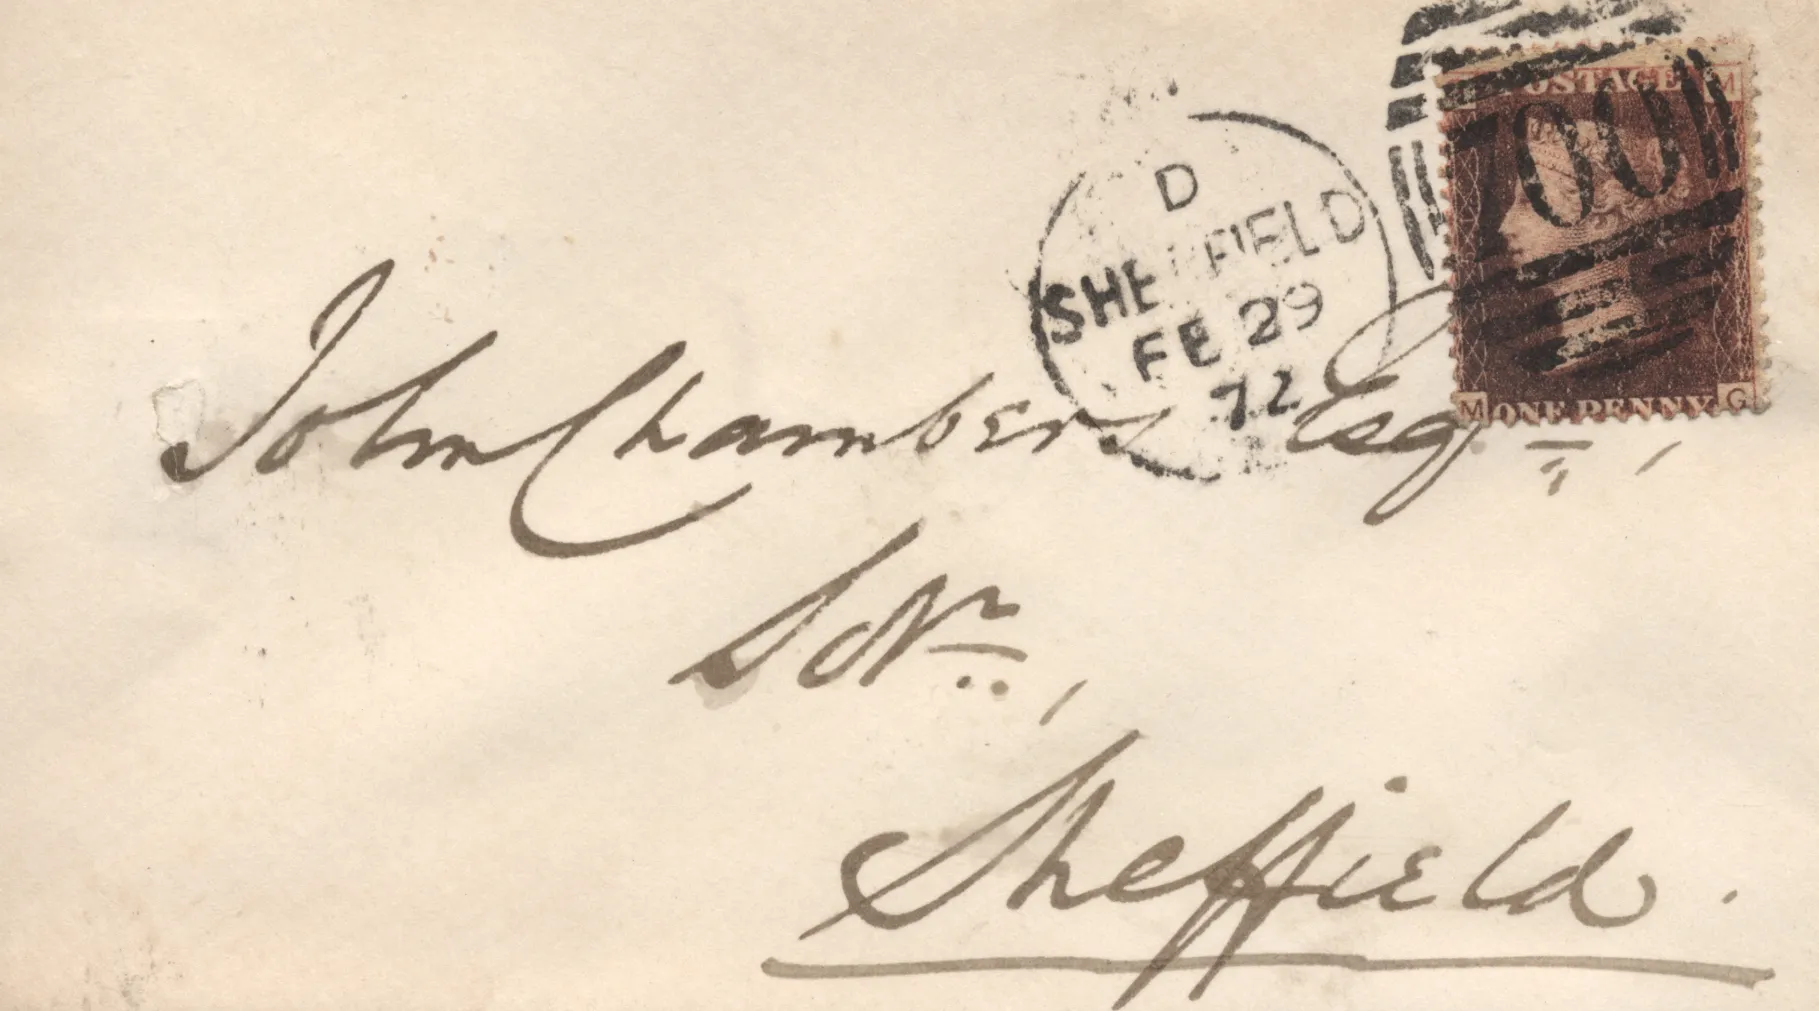 POSTAGE M
700
D
SHEFFIELD
FE 29
72
M ONE PENNY. G
John Chambers Esqr,
Solr,
Sheffield.